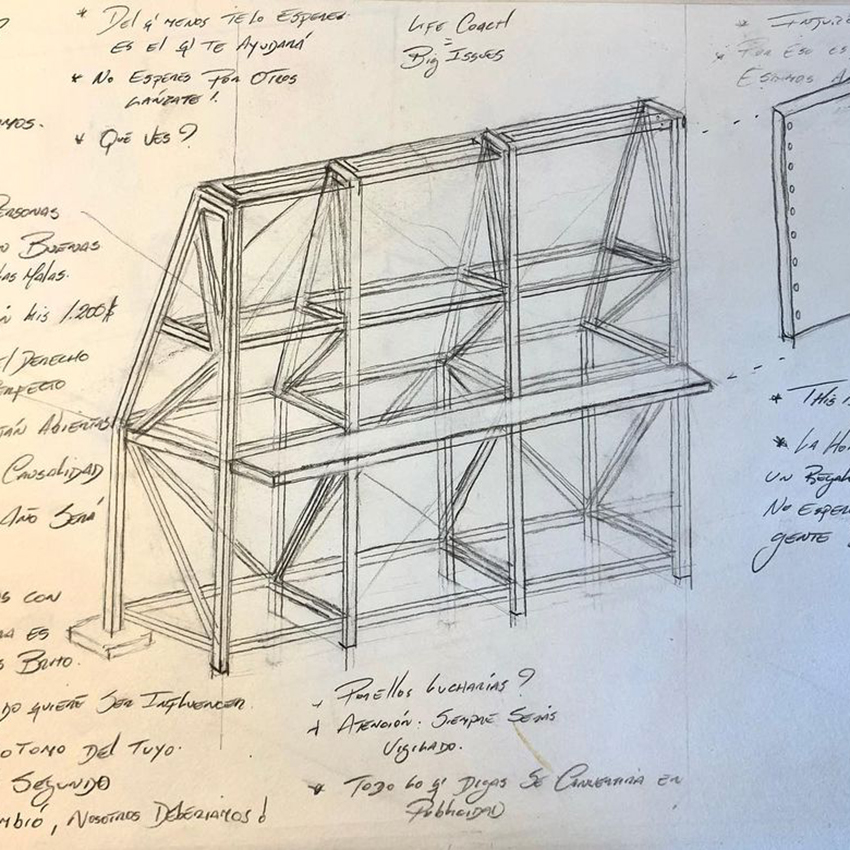 * Del q' menos te lo esperes
es el q' te Ayudará
* No Esperes Por Otros
Lánzate!
* Que ves?
Life Coach
=
Big Issues
*
* Por Eso es
Estamos
ersonas
Buenas
las Malas.
mis 1.200$
el Derecho
erfecto
tán Abiertas
Causalidad
Año Será
s con
es
Brito.
do quiere Ser Influencer.
otomo del Tuyo.
Segundo
mbió, Nosotros Deberiamos!
* This
* La
un
No
gente
+ Por ellos Lucharías?
+ Atención: Siempre Serás
Vigilado.
* Todo lo q' Digas Se Convertirá en
Publicidad